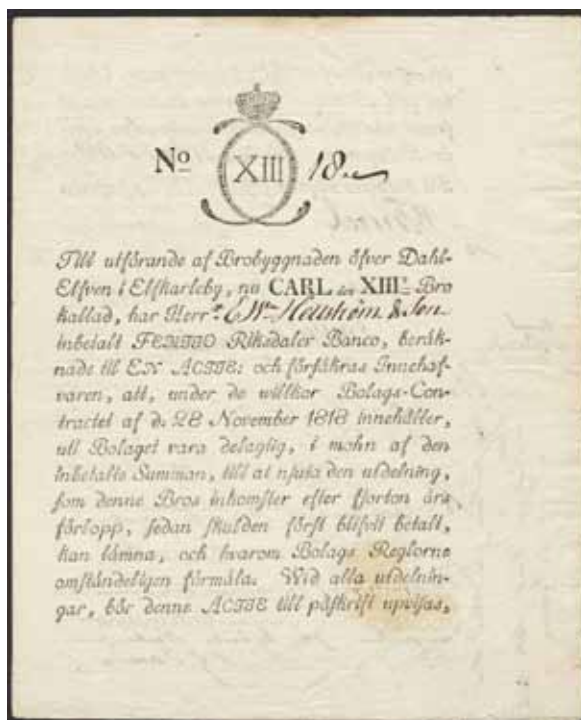 No XIII 18
Till utförande af Brobyggnaden öfver Dahl-
Elfven i Elfkarleby, nu CARL den XIII:s Bro
kallad, har Herr & Son
inbetalt FEMTIO Riksdaler Banco, beräk-
nade till EN ACTIE: och förfäkras Innehaf-
varen, att, under de willkor Bolags-Con-
tractet af d. 28 November 1818 innehåller,
uti Bolaget vara delagtig, i mohn af den
inbetalte Summan, till at njuta den utdelning,
fom denne Bros inkomfter efter fjorton års
förlopp, fedan fkulden förft blifvit betalt,
kan lämna, och hvarom Bolags Reglorne
omftändeligen förmäla. Wid alla utdelnin-
gar, bör denne ACTIE till påfkrift upvifas,